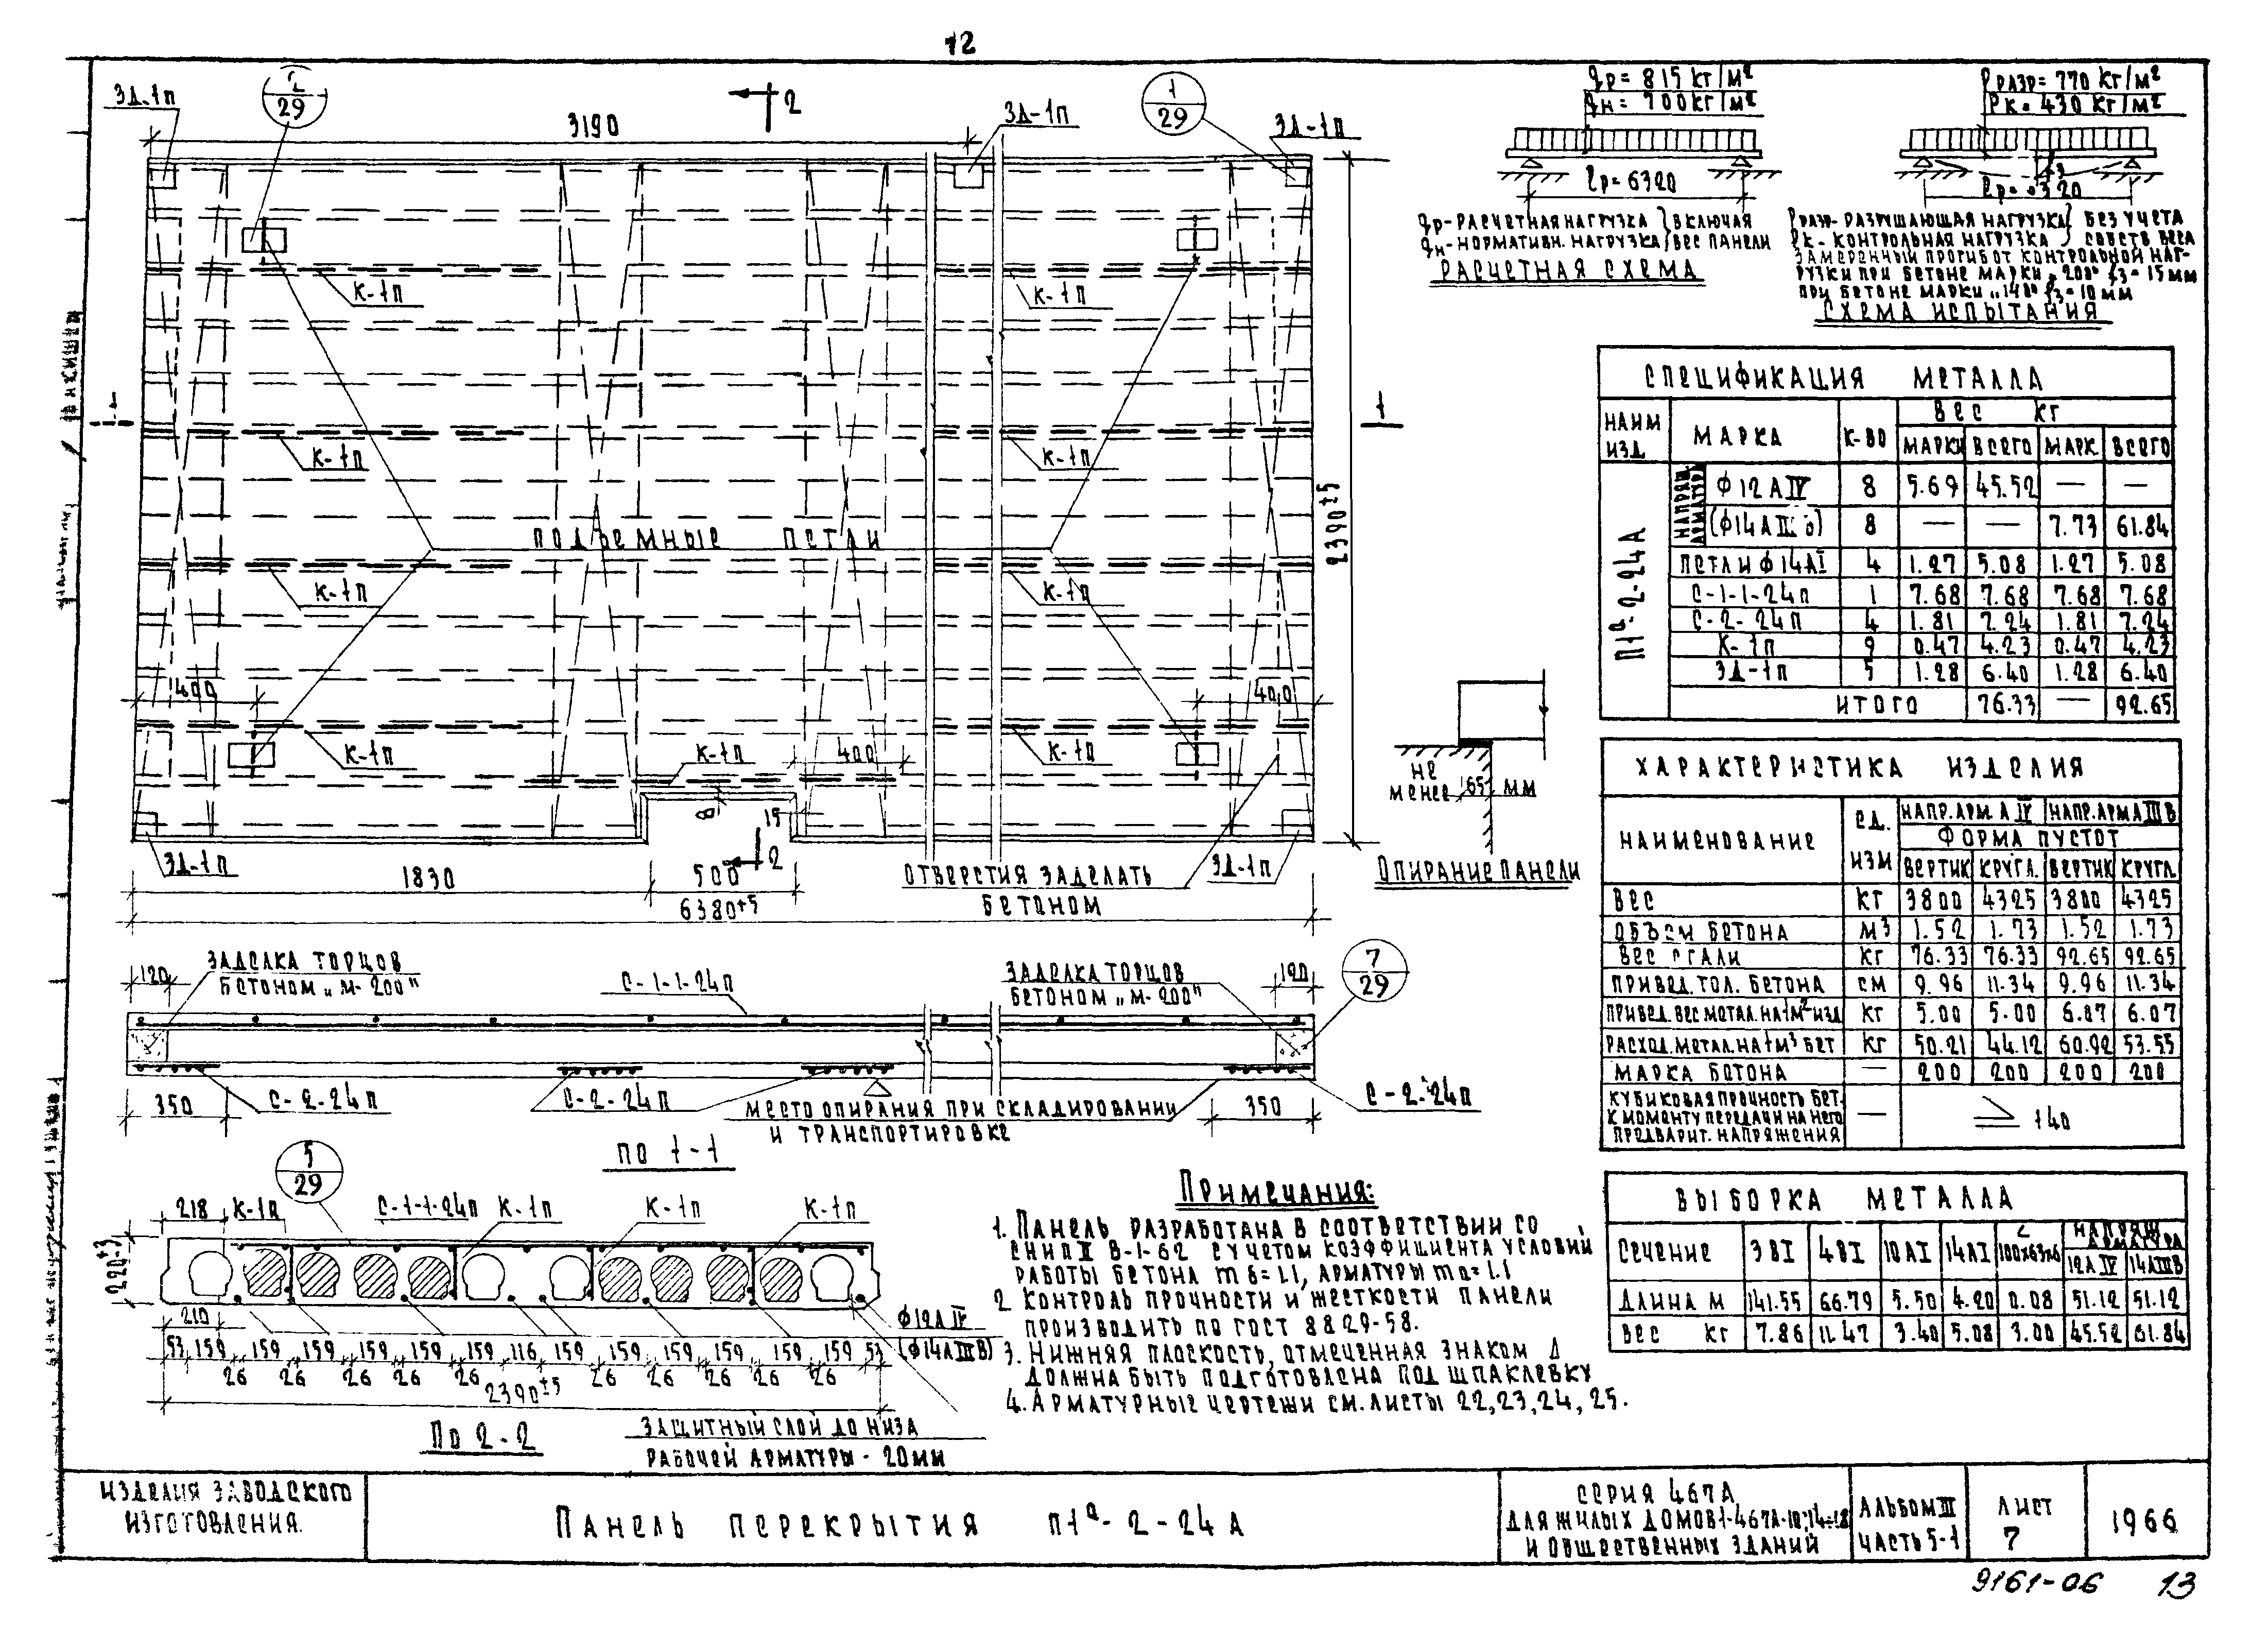 12
ЗД-1п
2
29
3190
2
ЗД-1п
1
29
ЗД-1п
К-1п
К-1п
1
1
К-1п
К-1п
ПОДЪЕМНЫЕ ПЕТЛИ
2390±5
К-1п
К-1п
400
400
К-1п
К-1п
400
К-1п
8
15
2
ЗД-1п
ЗД-1п
1830
500
ОТВЕРСТИЯ ЗАДЕЛАТЬ
БЕТОНОМ
6380±5
qр= 815 кг/м²
qн= 700 кг/м²
ℓр= 6320
qр-РАСЧЕТНАЯ НАГРУЗКА } ВКЛЮЧАЯ
qн-НОРМАТИВН. НАГРУЗКА } ВЕС ПАНЕЛИ
РАСЧЕТНАЯ СХЕМА
Рразр= 770 кг/м²
Рк= 430 кг/м²
fз
ℓр= 320
Рразр- РАЗРУШАЮЩАЯ НАГРУЗКА } БЕЗ УЧЕТА
Рк- КОНТРОЛЬНАЯ НАГРУЗКА } СОБСТВ ВЕСА
ЗАМЕРЕННЫЙ ПРОГИБ ОТ КОНТРОЛЬНОЙ НАГ-
РУЗКИ ПРИ БЕТОНЕ МАРКИ „200" fз= 15 мм
ПРИ БЕТОНЕ МАРКИ „140" fз= 10 мм
СХЕМА ИСПЫТАНИЯ
НЕ
МЕНЕЕ 65 ММ
ОПИРАНИЕ ПАНЕЛИ
СПЕЦИФИКАЦИЯ МЕТАЛЛА
НАИМ ИЗД МАРКА К-ВО ВЕС КГ
МАРКИ ВСЕГО МАРК. ВСЕГО
П1ᵃ-2-24А
НАПРЯЖ. АРМАТУРА
Ф12АIV 8 5.69 45.52 — —
(Ф14АIIIв) 8 — — 7.73 61.84
ПЕТЛИ Ф14АI 4 1.27 5.08 1.27 5.08
С-1-1-24п 1 7.68 7.68 7.68 7.68
С-2-24п 4 1.81 7.24 1.81 7.24
К-1п 9 0.47 4.23 0.47 4.23
ЗД-1п 5 1.28 6.40 1.28 6.40
ИТОГО 76.33 — 92.65
ХАРАКТЕРИСТИКА ИЗДЕЛИЯ
НАИМЕНОВАНИЕ ЕД. ИЗМ НАПР.АРМ. АIV НАПР.АРМ АIIIВ
ФОРМА ПУСТОТ
ВЕРТИК КРУГЛ. ВЕРТИК КРУГЛ.
ВЕС КГ 3800 4325 3800 4325
ОБЪЕМ БЕТОНА М³ 1.52 1.73 1.52 1.73
ВЕС СТАЛИ КГ 76.33 76.33 92.65 92.65
ПРИВЕД. ТОЛ. БЕТОНА СМ 9.96 11.34 9.96 11.34
ПРИВЕД. ВЕС МЕТАЛ. НА 1М² ИЗД КГ 5.00 5.00 6.07 6.07
РАСХОД. МЕТАЛ. НА 1М³ БЕТ КГ 50.21 44.12 60.92 53.55
МАРКА БЕТОНА — 200 200 200 200
КУБИКОВАЯ ПРОЧНОСТЬ БЕТ.
К МОМЕНТУ ПЕРЕДАЧИ НА НЕГО — ≥ 140
ПРЕДВАРИТ. НАПРЯЖЕНИЯ
ВЫБОРКА МЕТАЛЛА
СЕЧЕНИЕ 3ВI 4ВI 10АI 14АI ∠100х63х6 НАПРЯЖ. АРМАТУРА
12АIV 14АIIIВ
ДЛИНА М 141.55 66.79 5.50 4.20 0.08 51.12 51.12
ВЕС КГ 7.86 11.47 3.40 5.08 3.00 45.52 61.84
120
ЗАДЕЛКА ТОРЦОВ
БЕТОНОМ „М-200"
С-1-1-24п
ЗАДЕЛКА ТОРЦОВ
БЕТОНОМ „М-200"
120
7
29
350
С-2-24п
С-2-24п
МЕСТО ОПИРАНИЯ ПРИ СКЛАДИРОВАНИИ
И ТРАНСПОРТИРОВКЕ
350
С-2-24п
ПО 1-1
5
29
218
К-1п
С-1-1-24п
К-1п
К-1п
К-1п
220±3
210
Ф12АIV
(Ф14АIIIВ)
53 159 159 159 159 159 116 159 159 159 159 159 53
26 26 26 26 26 26 26 26 26 26
2390±5
ПО 2-2
ЗАЩИТНЫЙ СЛОЙ ДО НИЗА
РАБОЧЕЙ АРМАТУРЫ - 20ММ
ПРИМЕЧАНИЯ:
1. ПАНЕЛЬ РАЗРАБОТАНА В СООТВЕТСТВИИ СО
СНИП II В-1-62 С УЧЕТОМ КОЭФФИЦИЕНТА УСЛОВИЙ
РАБОТЫ БЕТОНА mб= 1.1, АРМАТУРЫ mа= 1.1
2 КОНТРОЛЬ ПРОЧНОСТИ И ЖЕСТКОСТИ ПАНЕЛИ
ПРОИЗВОДИТЬ ПО ГОСТ 8829-58.
3. НИЖНЯЯ ПЛОСКОСТЬ, ОТМЕЧЕННАЯ ЗНАКОМ Δ
ДОЛЖНА БЫТЬ ПОДГОТОВЛЕНА ПОД ШПАКЛЕВКУ
4. АРМАТУРНЫЕ ЧЕРТЕЖИ СМ. ЛИСТЫ 22, 23, 24, 25.
ИЗДЕЛИЯ ЗАВОДСКОГО
ИЗГОТОВЛЕНИЯ.
ПАНЕЛЬ ПЕРЕКРЫТИЯ П1ᵃ-2-24А
СЕРИЯ 467А
ДЛЯ ЖИЛЫХ ДОМОВ 1-467А-10;14÷18
И ОБЩЕСТВЕННЫХ ЗДАНИЙ
АЛЬБОМ III
ЧАСТЬ 5-1
ЛИСТ
7
1966
9161-06 13